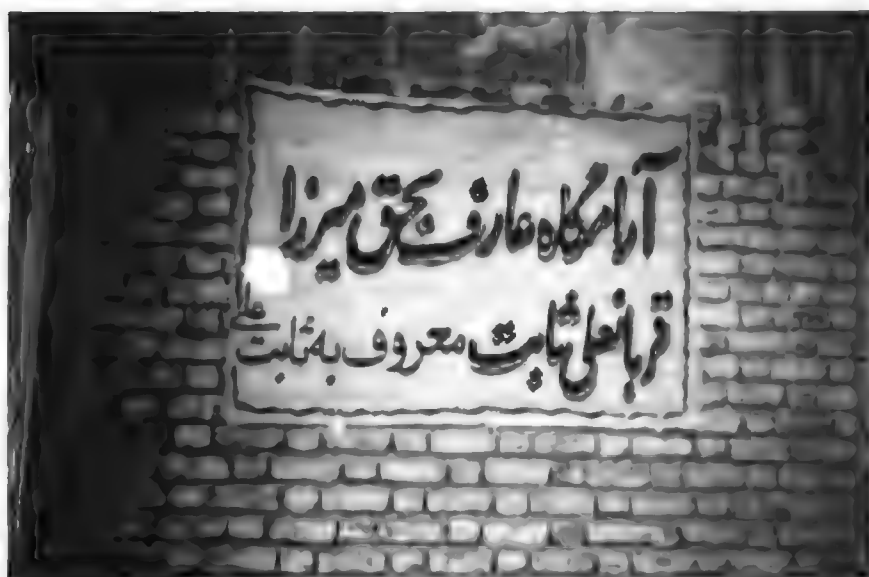 آرامگاه عارف بحق میرزا
قربانعلی ثابت معروف به ثابت